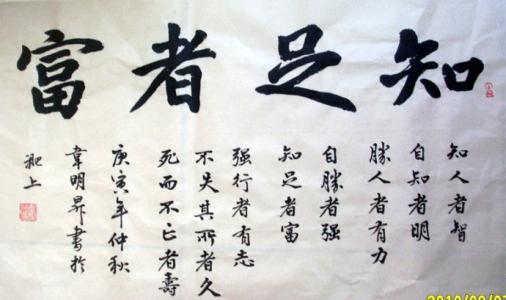 知足者富
知人者智
自知者明
勝人者有力
自勝者强
知足者富
强行者有志
不失其所者久
死而不亡者壽
庚寅年仲秋
韋明昇書於
淝上